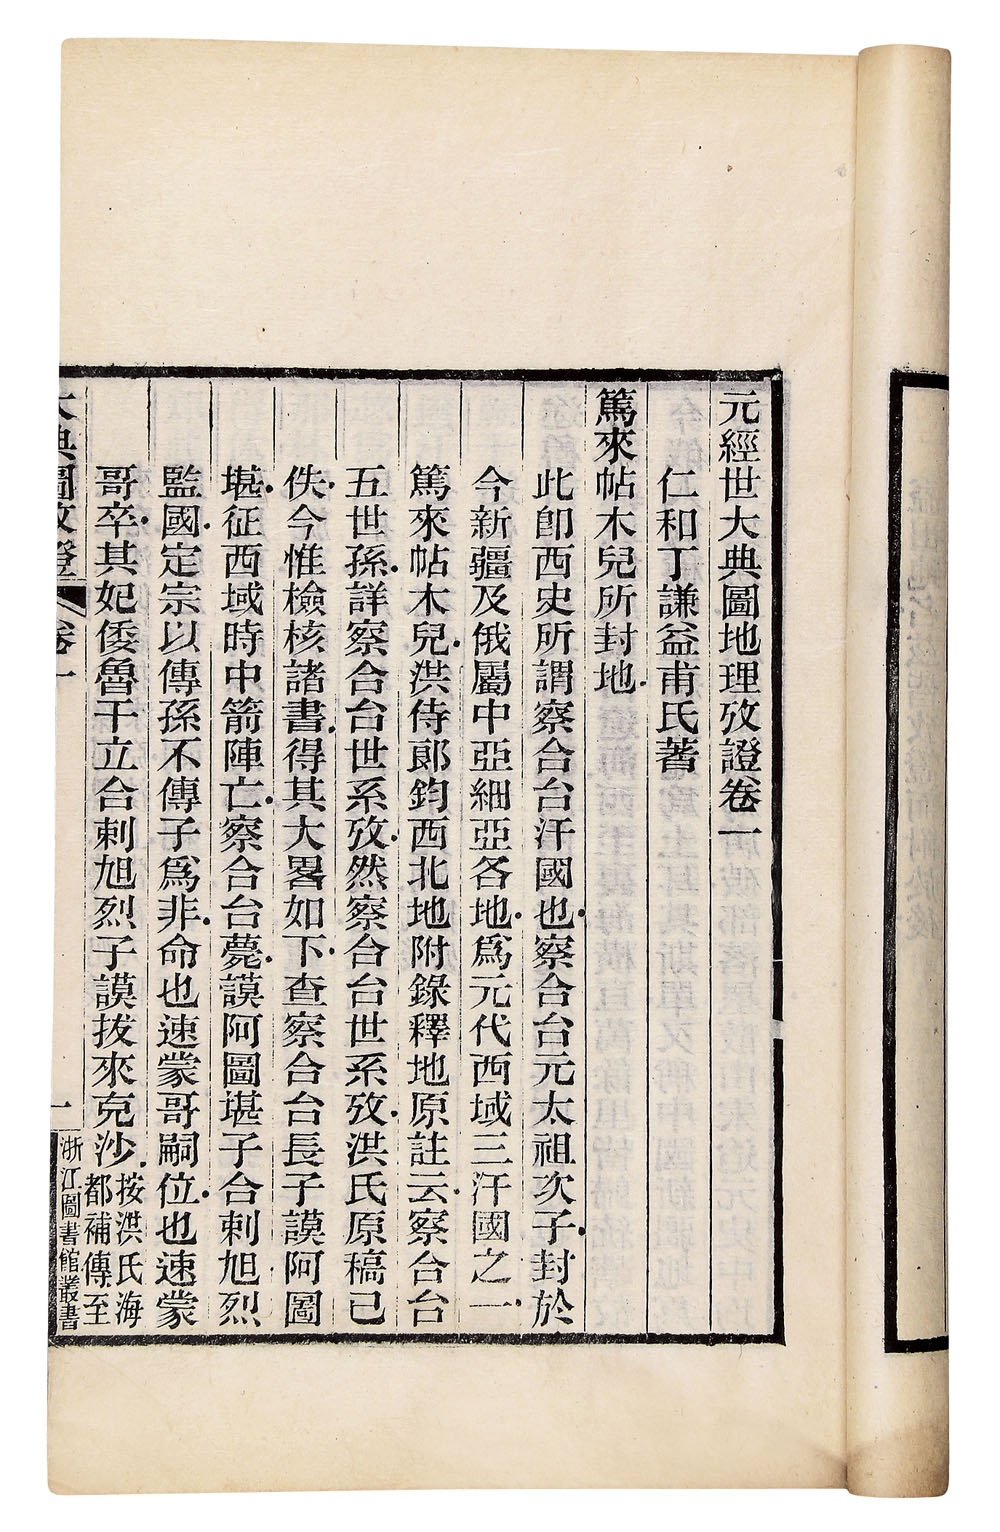 元經世大典圖地理攷證卷一
仁和丁謙益甫氏著
篤來帖木兒所封地
此卽西史所謂察合台汗國也察合台元太祖次子封於
今新疆及俄屬中亞細亞各地爲元代西域三汗國之一
篤來帖木兒洪侍郎鈞西北地附錄釋地原註云察合台
五世孫詳察合台世系攷然察合台世系攷洪氏原稿已
佚今惟檢核諸書得其大畧如下查察合台長子謨阿圖
堪征西域時中箭陣亡察合台薨謨阿圖堪子合剌旭烈
監國定宗以傳孫不傳子爲非命也速蒙哥嗣位也速蒙
哥卒其妃倭魯干立合剌旭烈子謨拔來克沙按洪氏海
都補傳至
大典圖攷證 卷一
一
浙江圖書館叢書